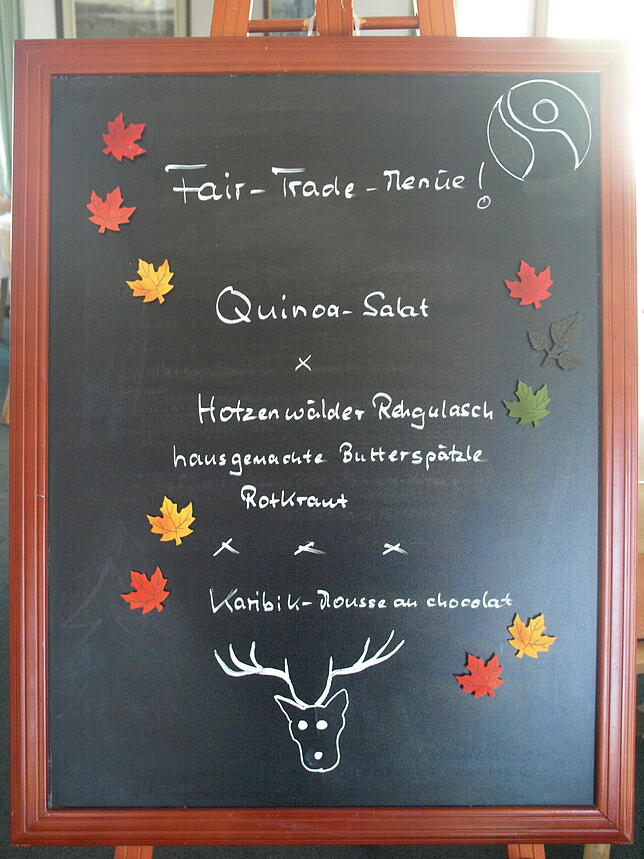 Fair-Trade-Menüe!
Quinoa-Salat
x
Hotzenwälder Rehgulasch
hausgemachte Butterspätzle
Rotkraut
x x x
Karibik-Mousse au chocolat